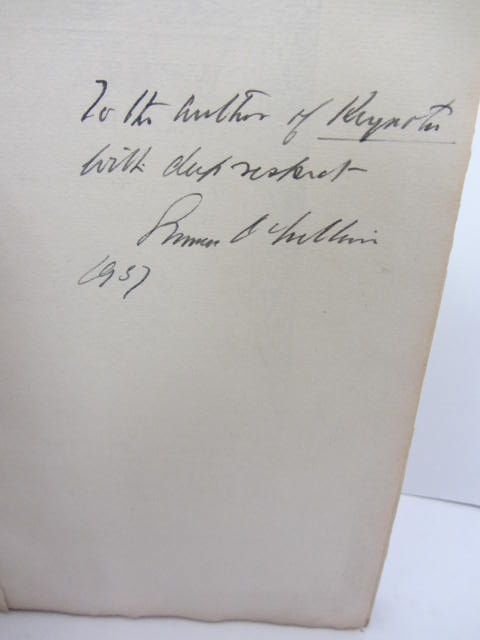 To the Author of Keynotes
with deep respect
Seumas O'Sullivan
1937